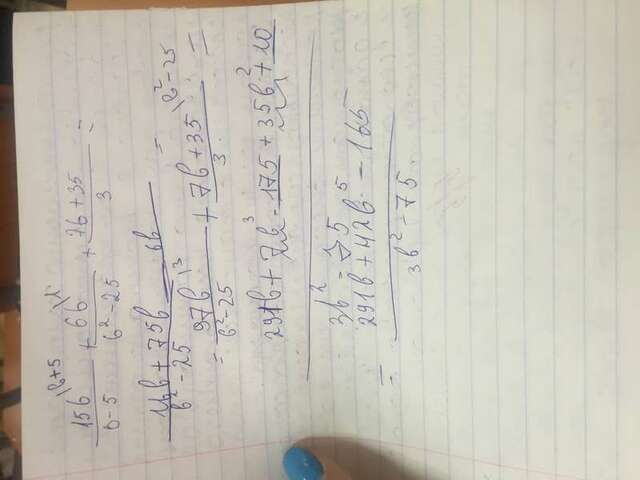 15b^{|b+5}/b-5 + 6b^{|1}/b²-25 + 7b+35/3 =
16b+75b 6b/b²-25 =
= 97b^{|3}/b²-25 + 7b+35^{|b²-25}/3 =
291b+7b³-175+35b²+10
3b²-75
= 291b+42b⁵-165/3b²-75